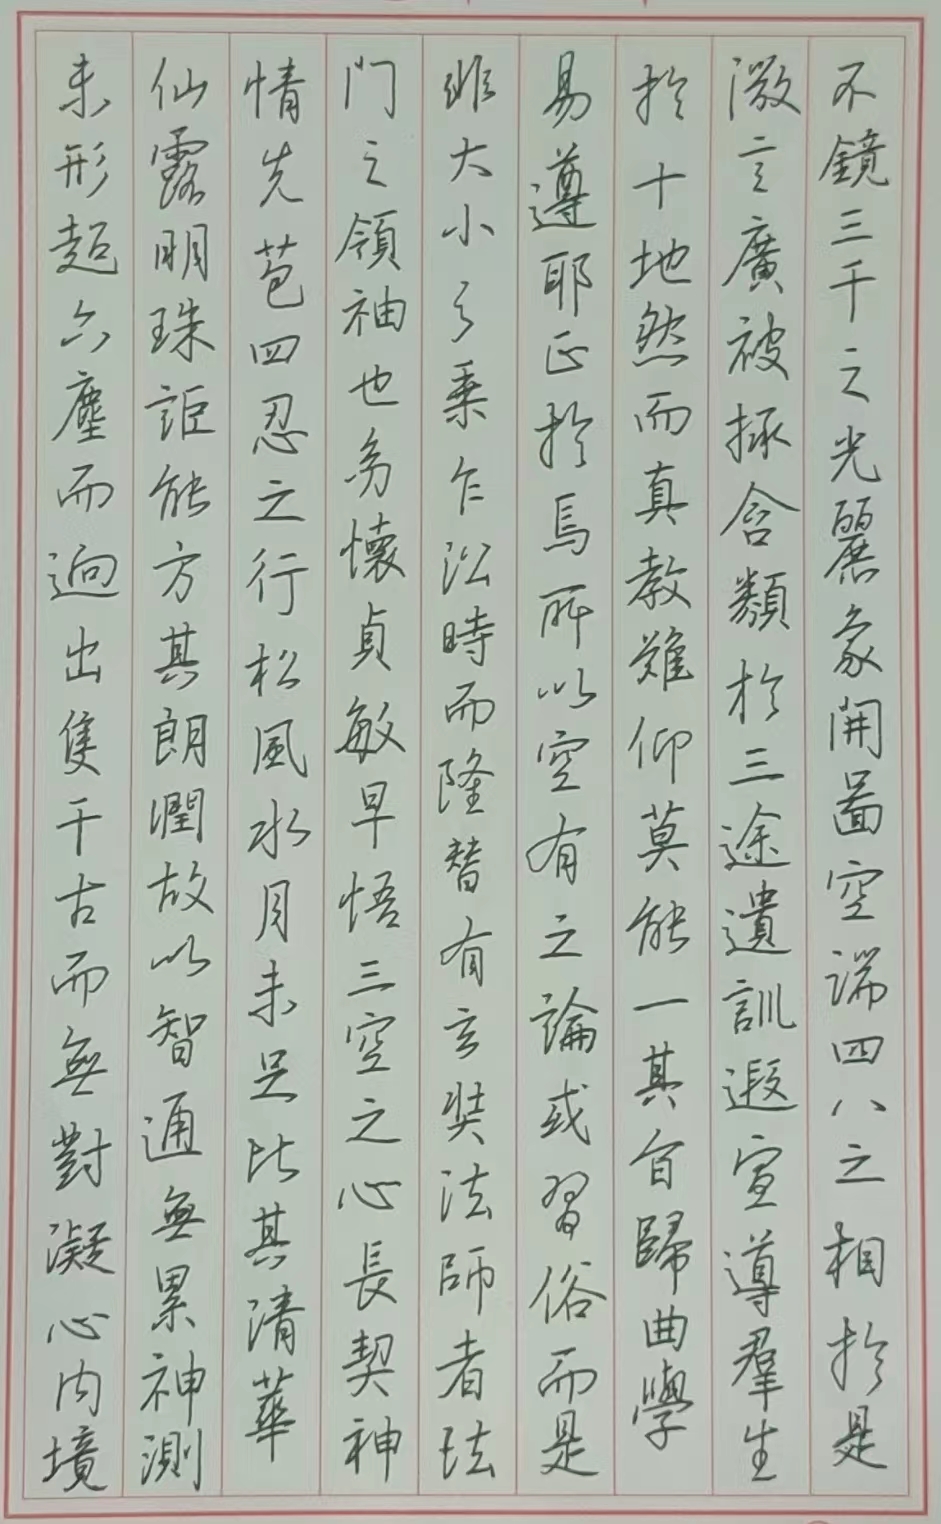 不鏡三千之光麗象開啚空端四八之相扵是
微言廣被拯含類扵三途遺訓遐宣導羣生
扵十地然而真教難仰莫能一其旨歸曲學
易遵耶正扵焉所以空有之論或習俗而是
非大小之乗乍沿時而隆替有玄奘法師者法
門之領袖也㓜懷貞敏早悟三空之心長契神
情先苞四忍之行松風水月未足比其清華
仙露明珠詎能方其朗潤故以智通無累神測
未形超六塵而迥出隻千古而無對凝心内境